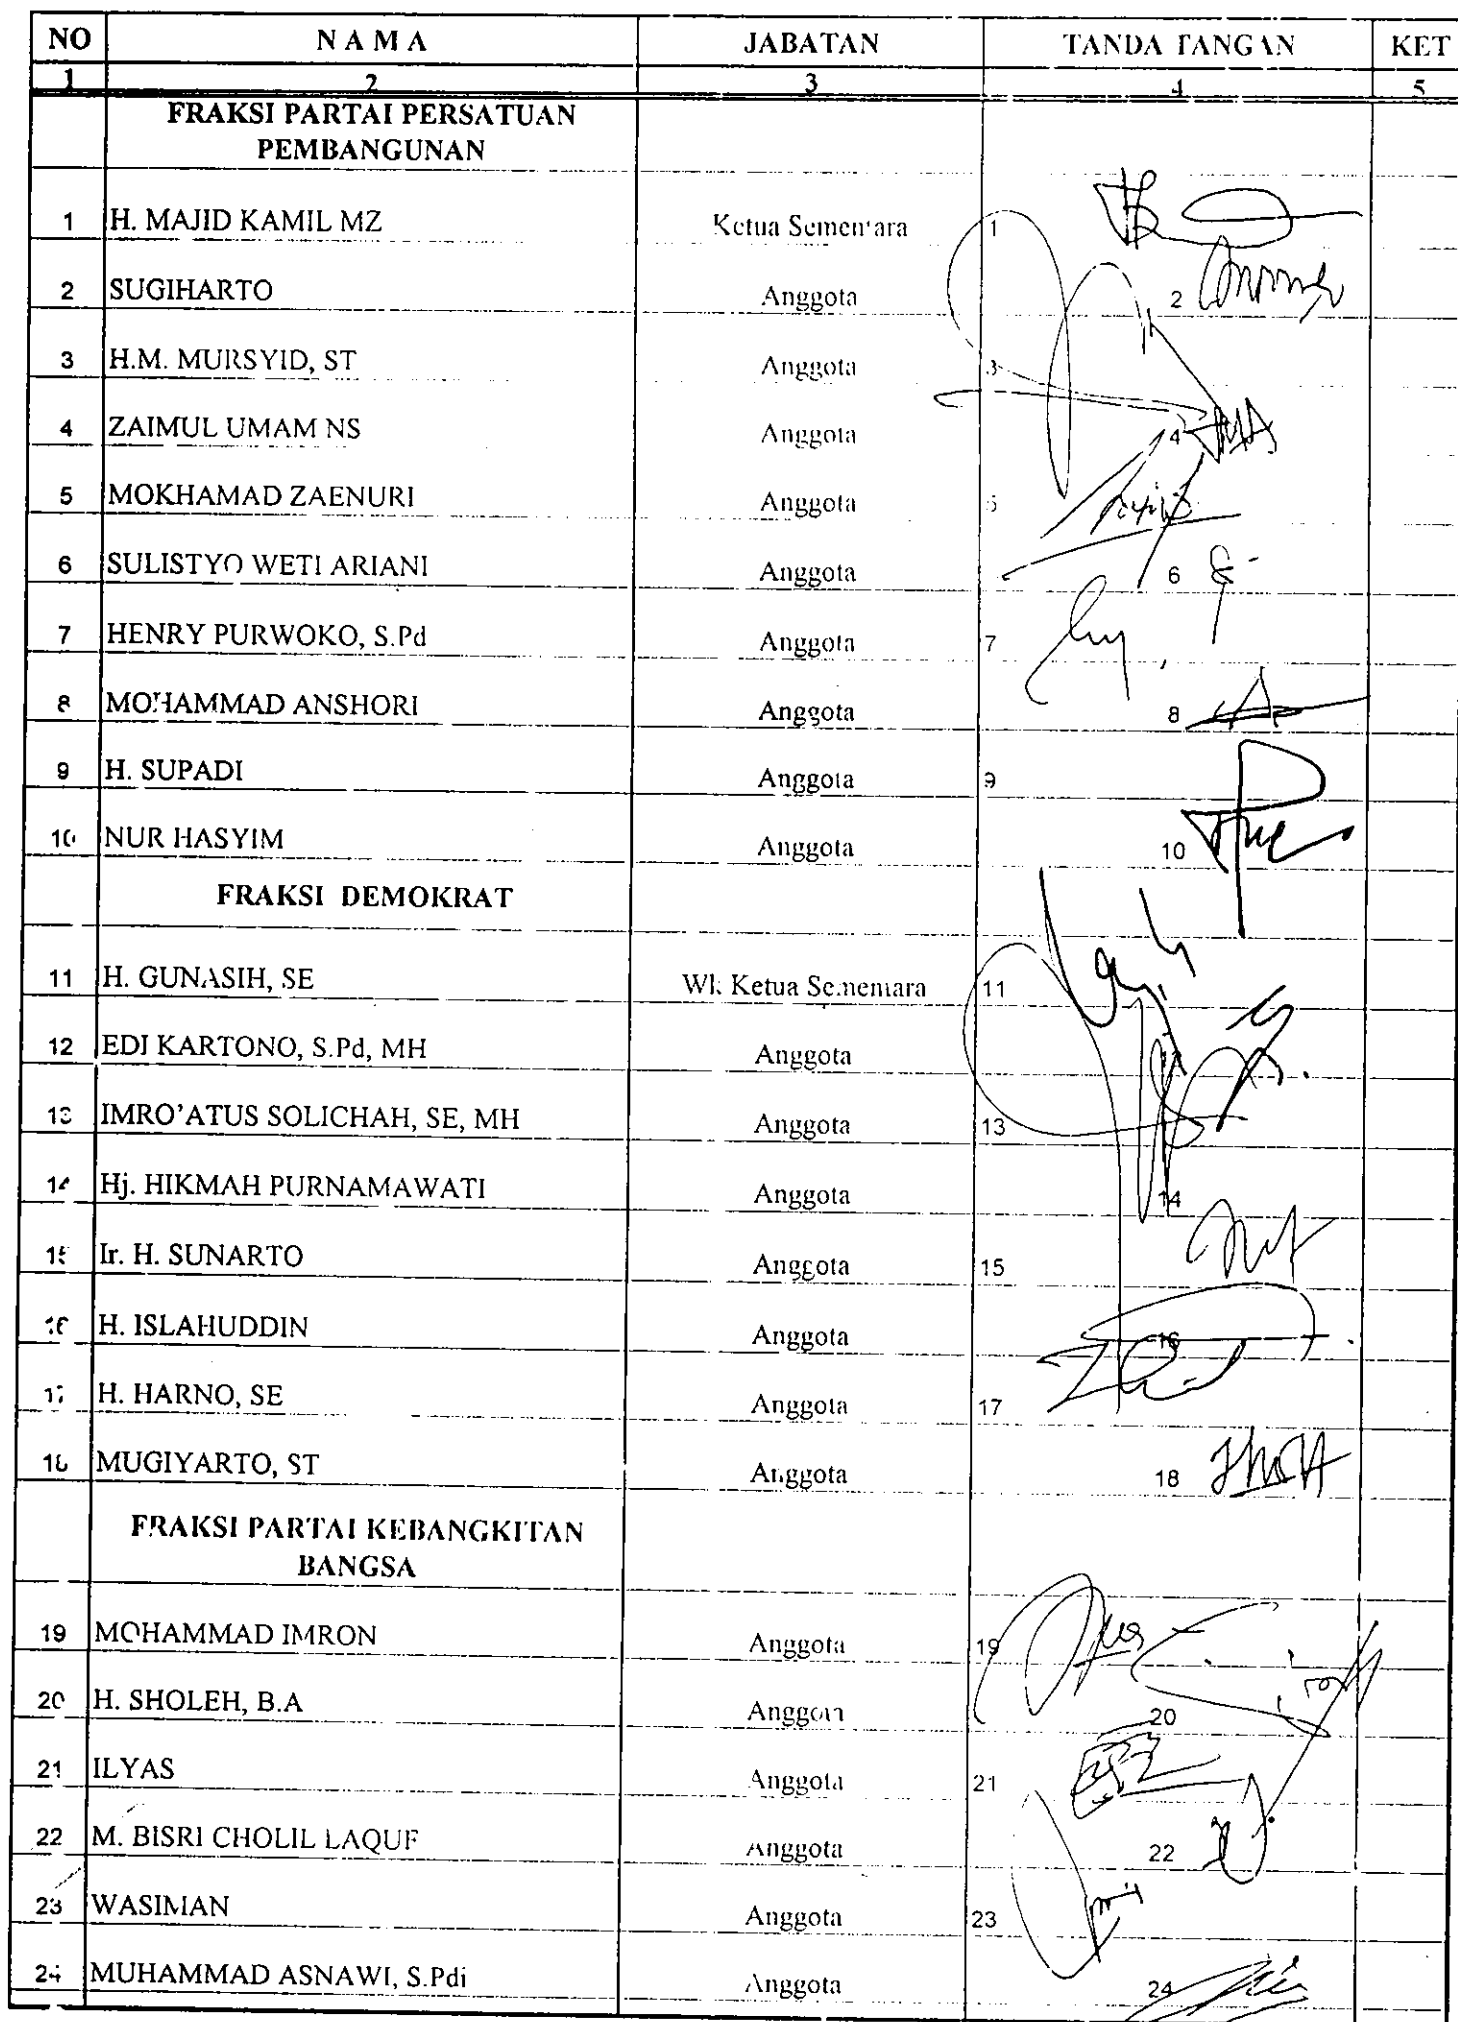 NO NAMA JABATAN TANDA TANGAN KET
1 2 3 4 5
FRAKSI PARTAI PERSATUAN
PEMBANGUNAN
1 H. MAJID KAMIL MZ Ketua Sementara 1
2 SUGIHARTO Anggota 2
3 H.M. MURSYID, ST Anggota 3
4 ZAIMUL UMAM NS Anggota 4
5 MOKHAMAD ZAENURI Anggota 5
6 SULISTYO WETI ARIANI Anggota 6
7 HENRY PURWOKO, S.Pd Anggota 7
8 MOHAMMAD ANSHORI Anggota 8
9 H. SUPADI Anggota 9
10 NUR HASYIM Anggota 10
FRAKSI DEMOKRAT
11 H. GUNASIH, SE Wk Ketua Sementara 11
12 EDI KARTONO, S.Pd, MH Anggota
13 IMRO'ATUS SOLICHAH, SE, MH Anggota 13
14 Hj. HIKMAH PURNAMAWATI Anggota 14
15 Ir. H. SUNARTO Anggota 15
16 H. ISLAHUDDIN Anggota 16
17 H. HARNO, SE Anggota 17
18 MUGIYARTO, ST Anggota 18
FRAKSI PARTAI KEBANGKITAN
BANGSA
19 MOHAMMAD IMRON Anggota 19
20 H. SHOLEH, B.A Anggota 20
21 ILYAS Anggota 21
22 M. BISRI CHOLIL LAQUF Anggota 22
23 WASIMAN Anggota 23
24 MUHAMMAD ASNAWI, S.Pdi Anggota 24